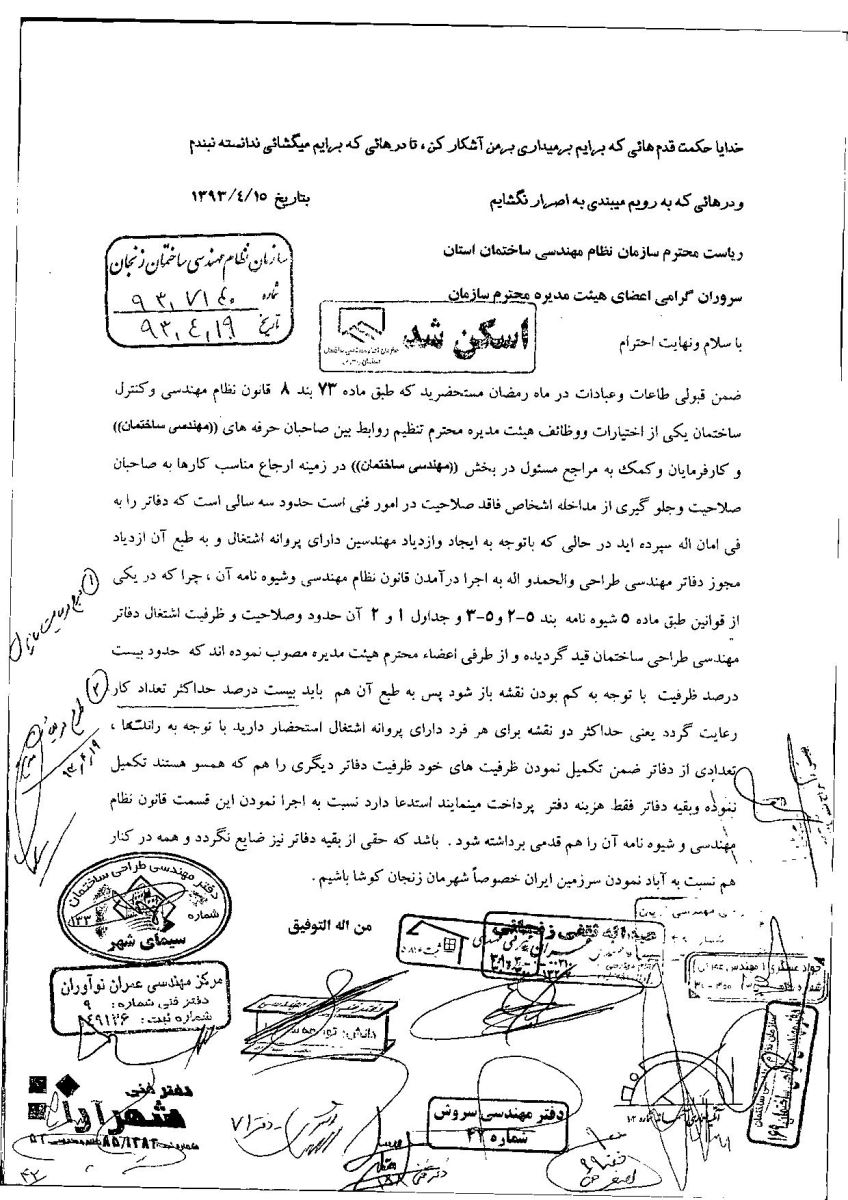 خدایا حکمت قدم هائی که برایم برمیداری برمن آشکار کن ، تا درهائی که برایم میگشائی ندانسته نبندم
ودرهائی که به رویم میبندی به اصرار نگشایم
بتاریخ ۱۳۹۳/۴/۱۵
ریاست محترم سازمان نظام مهندسی ساختمان استان
سازمان نظام مهندسی ساختمان زنجان
شماره ۹۳,۷۱۴۰
تاریخ ۹۳,۴,۱۹
سروران گرامی اعضای هیئت مدیره محترم سازمان
اسکن شد
با سلام ونهایت احترام
ضمن قبولی طاعات وعبادات در ماه رمضان مستحضرید که طبق ماده ۷۳ بند ۸ قانون نظام مهندسی وکنترل
ساختمان یکی از اختیارات ووظائف هیئت مدیره محترم تنظیم روابط بین صاحبان حرفه های ((مهندسی ساختمان))
و کارفرمایان وکمک به مراجع مسئول در بخش ((مهندسی ساختمان)) در زمینه ارجاع مناسب کارها به صاحبان
صلاحیت وجلو گیری از مداخله اشخاص فاقد صلاحیت در امور فنی است حدود سه سالی است که دفاتر را به
فی امان اله سپرده اید در حالی که باتوجه به ایجاد وازدیاد مهندسین دارای پروانه اشتغال و به طبع آن ازدیاد
مجوز دفاتر مهندسی طراحی والحمدو اله به اجرا درآمدن قانون نظام مهندسی وشیوه نامه آن ، چرا که در یکی
از قوانین طبق ماده ۵ شیوه نامه بند ۵-۲ و۵-۳ و جداول ۱ و ۲ آن حدود وصلاحیت و ظرفیت اشتغال دفاتر
مهندسی طراحی ساختمان قید گردیده و از طرفی اعضاء محترم هیئت مدیره مصوب نموده اند که حدود بیست
درصد ظرفیت با توجه به کم بودن نقشه باز شود پس به طبع آن هم باید بیست درصد حداکثر تعداد کار
رعایت گردد یعنی حداکثر دو نقشه برای هر فرد دارای پروانه اشتغال استحضار دارید با توجه به رانتها ،
تعدادی از دفاتر ضمن تکمیل نمودن ظرفیت های خود ظرفیت دفاتر دیگری را هم که همسو هستند تکمیل
نموده وبقیه دفاتر فقط هزینه دفتر پرداخت مینمایند استدعا دارد نسبت به اجرا نمودن این قسمت قانون نظام
مهندسی و شیوه نامه آن را هم قدمی برداشته شود . باشد که حقی از بقیه دفاتر نیز ضایع نگردد و همه در کنار
هم نسبت به آباد نمودن سرزمین ایران خصوصاً شهرمان زنجان کوشا باشیم .
من اله التوفیق
۹۳,۴,۱۹
دفتر مهندسی طراحی ساختمان
شماره ۱۳۳
سیمای شهر
مرکز مهندسی عمران نوآوران
دفتر فنی شماره: ۹
شماره ثبت: ۴۹۱۲۶
دفتر فنی
شهرآرا
دفتر ۷۱
دفتر مهندسی سروش
شماره ۴۲